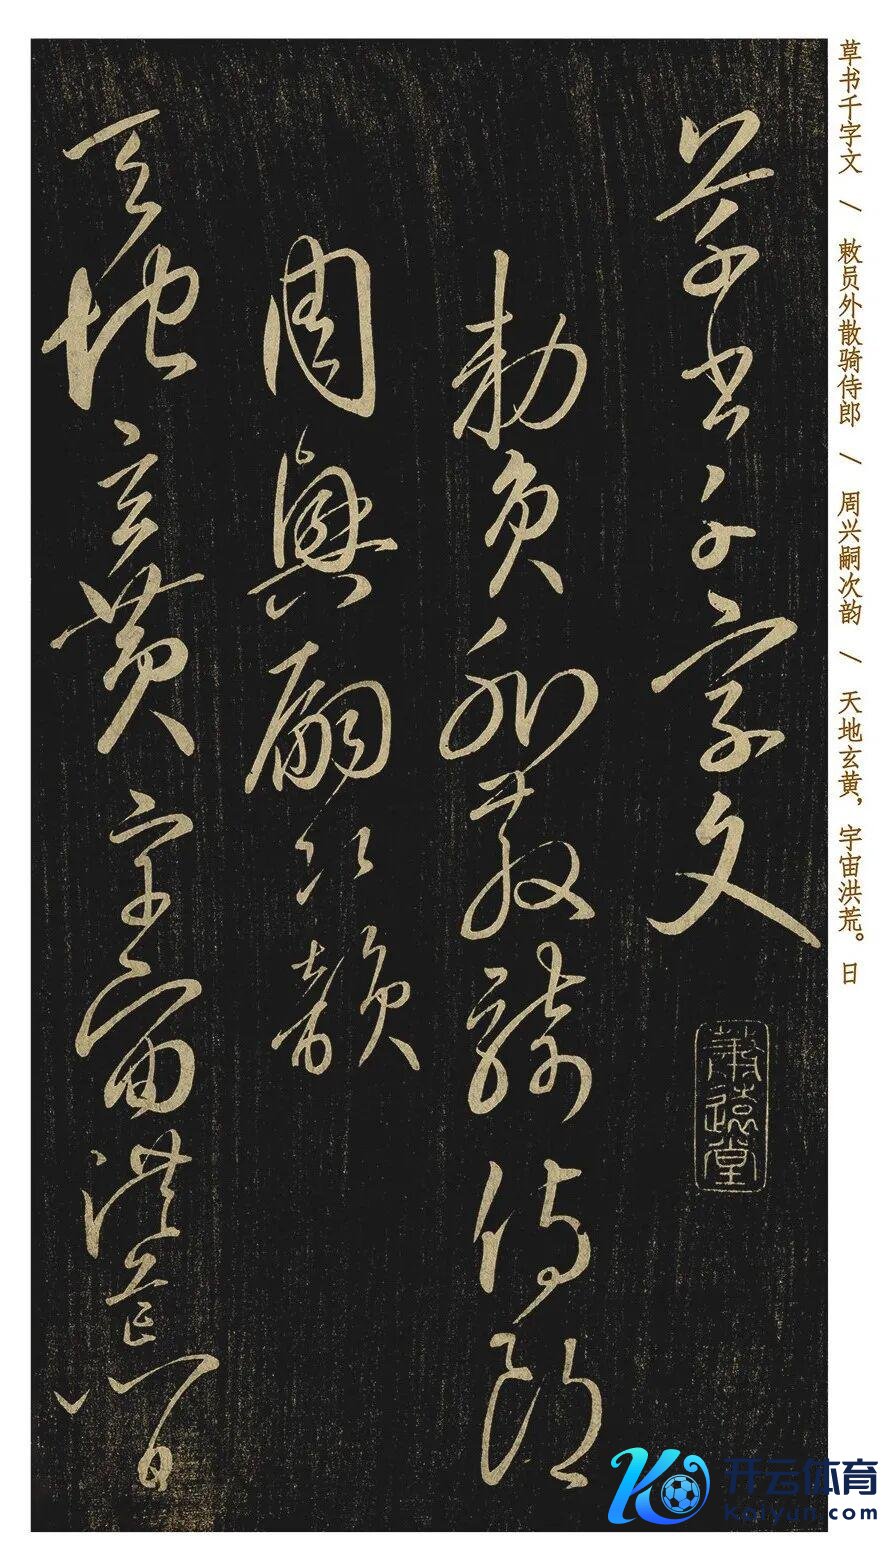 草书千字文 \ 敕员外散骑侍郎 \ 周兴嗣次韵 \ 天地玄黄，宇宙洪荒。日
草書千字文
勅員外散騎侍郎
周興嗣次韻
天地玄黃宇宙洪荒日
开云体育
kaiyun.com